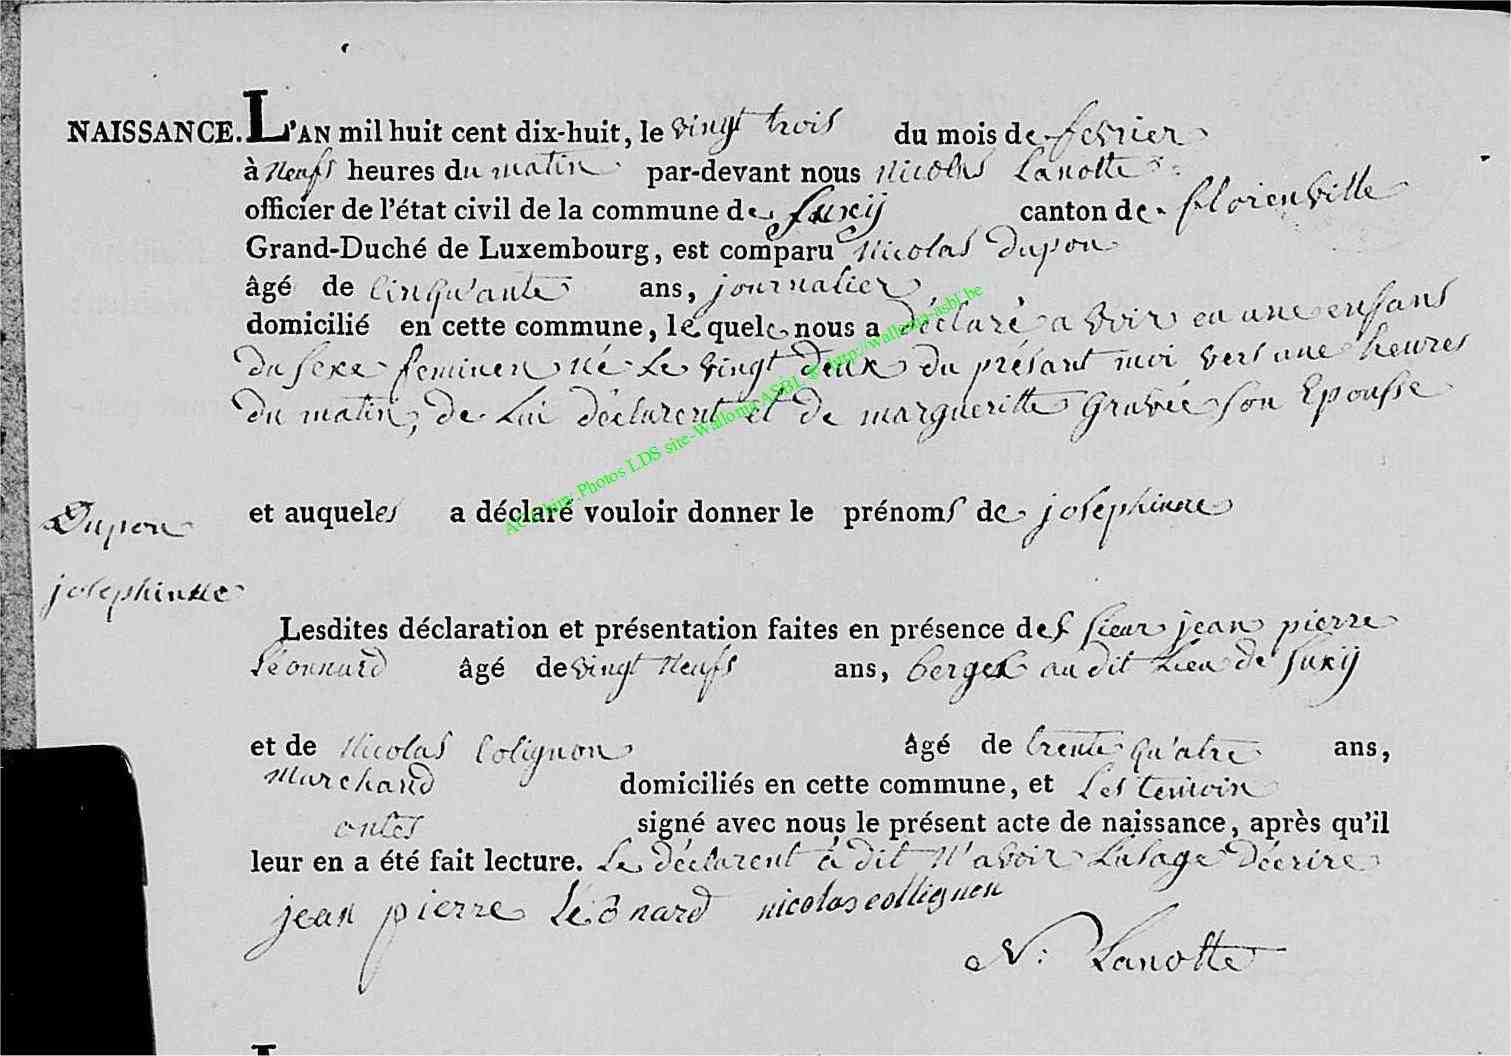 NAISSANCE. L'AN mil huit cent dix-huit, le vingt trois du mois de fevrier
à neufs heures du matin par-devant nous nicolas Lanotte
officier de l'état civil de la commune de Suxÿ canton de florenville
Grand-Duché de Luxembourg, est comparu nicolas Dupon
âgé de Cinqu'ante ans, journalier
domicilié en cette commune, le quel nous a déclaré avoir eu une enfans
du sexe feminen né le vingt deux du présant moi vers une heures
du matin, de Lui déclarent et de margueritte Gravée son Epousse
Dupon
et auqueles a déclaré vouloir donner le prénoms de josephinne
josephinne
Lesdites déclaration et présentation faites en présence des sieur jean pierre
Léonnard âgé de vingt neufs ans, berger au dit Lieu de Suxÿ
et de nicolas Colignon âgé de trente qu'atre ans,
marchand domiciliés en cette commune, et Les temoin
ontes signé avec nous le présent acte de naissance, après qu'il
leur en a été fait lecture. Le déclarent à dit n'avoir Lusage Décrire
jean pierre Léonard nicolas collignon
N. Lanotte
Photos LDS site-Wallonia ASBL © http://wallonia-asbl.be